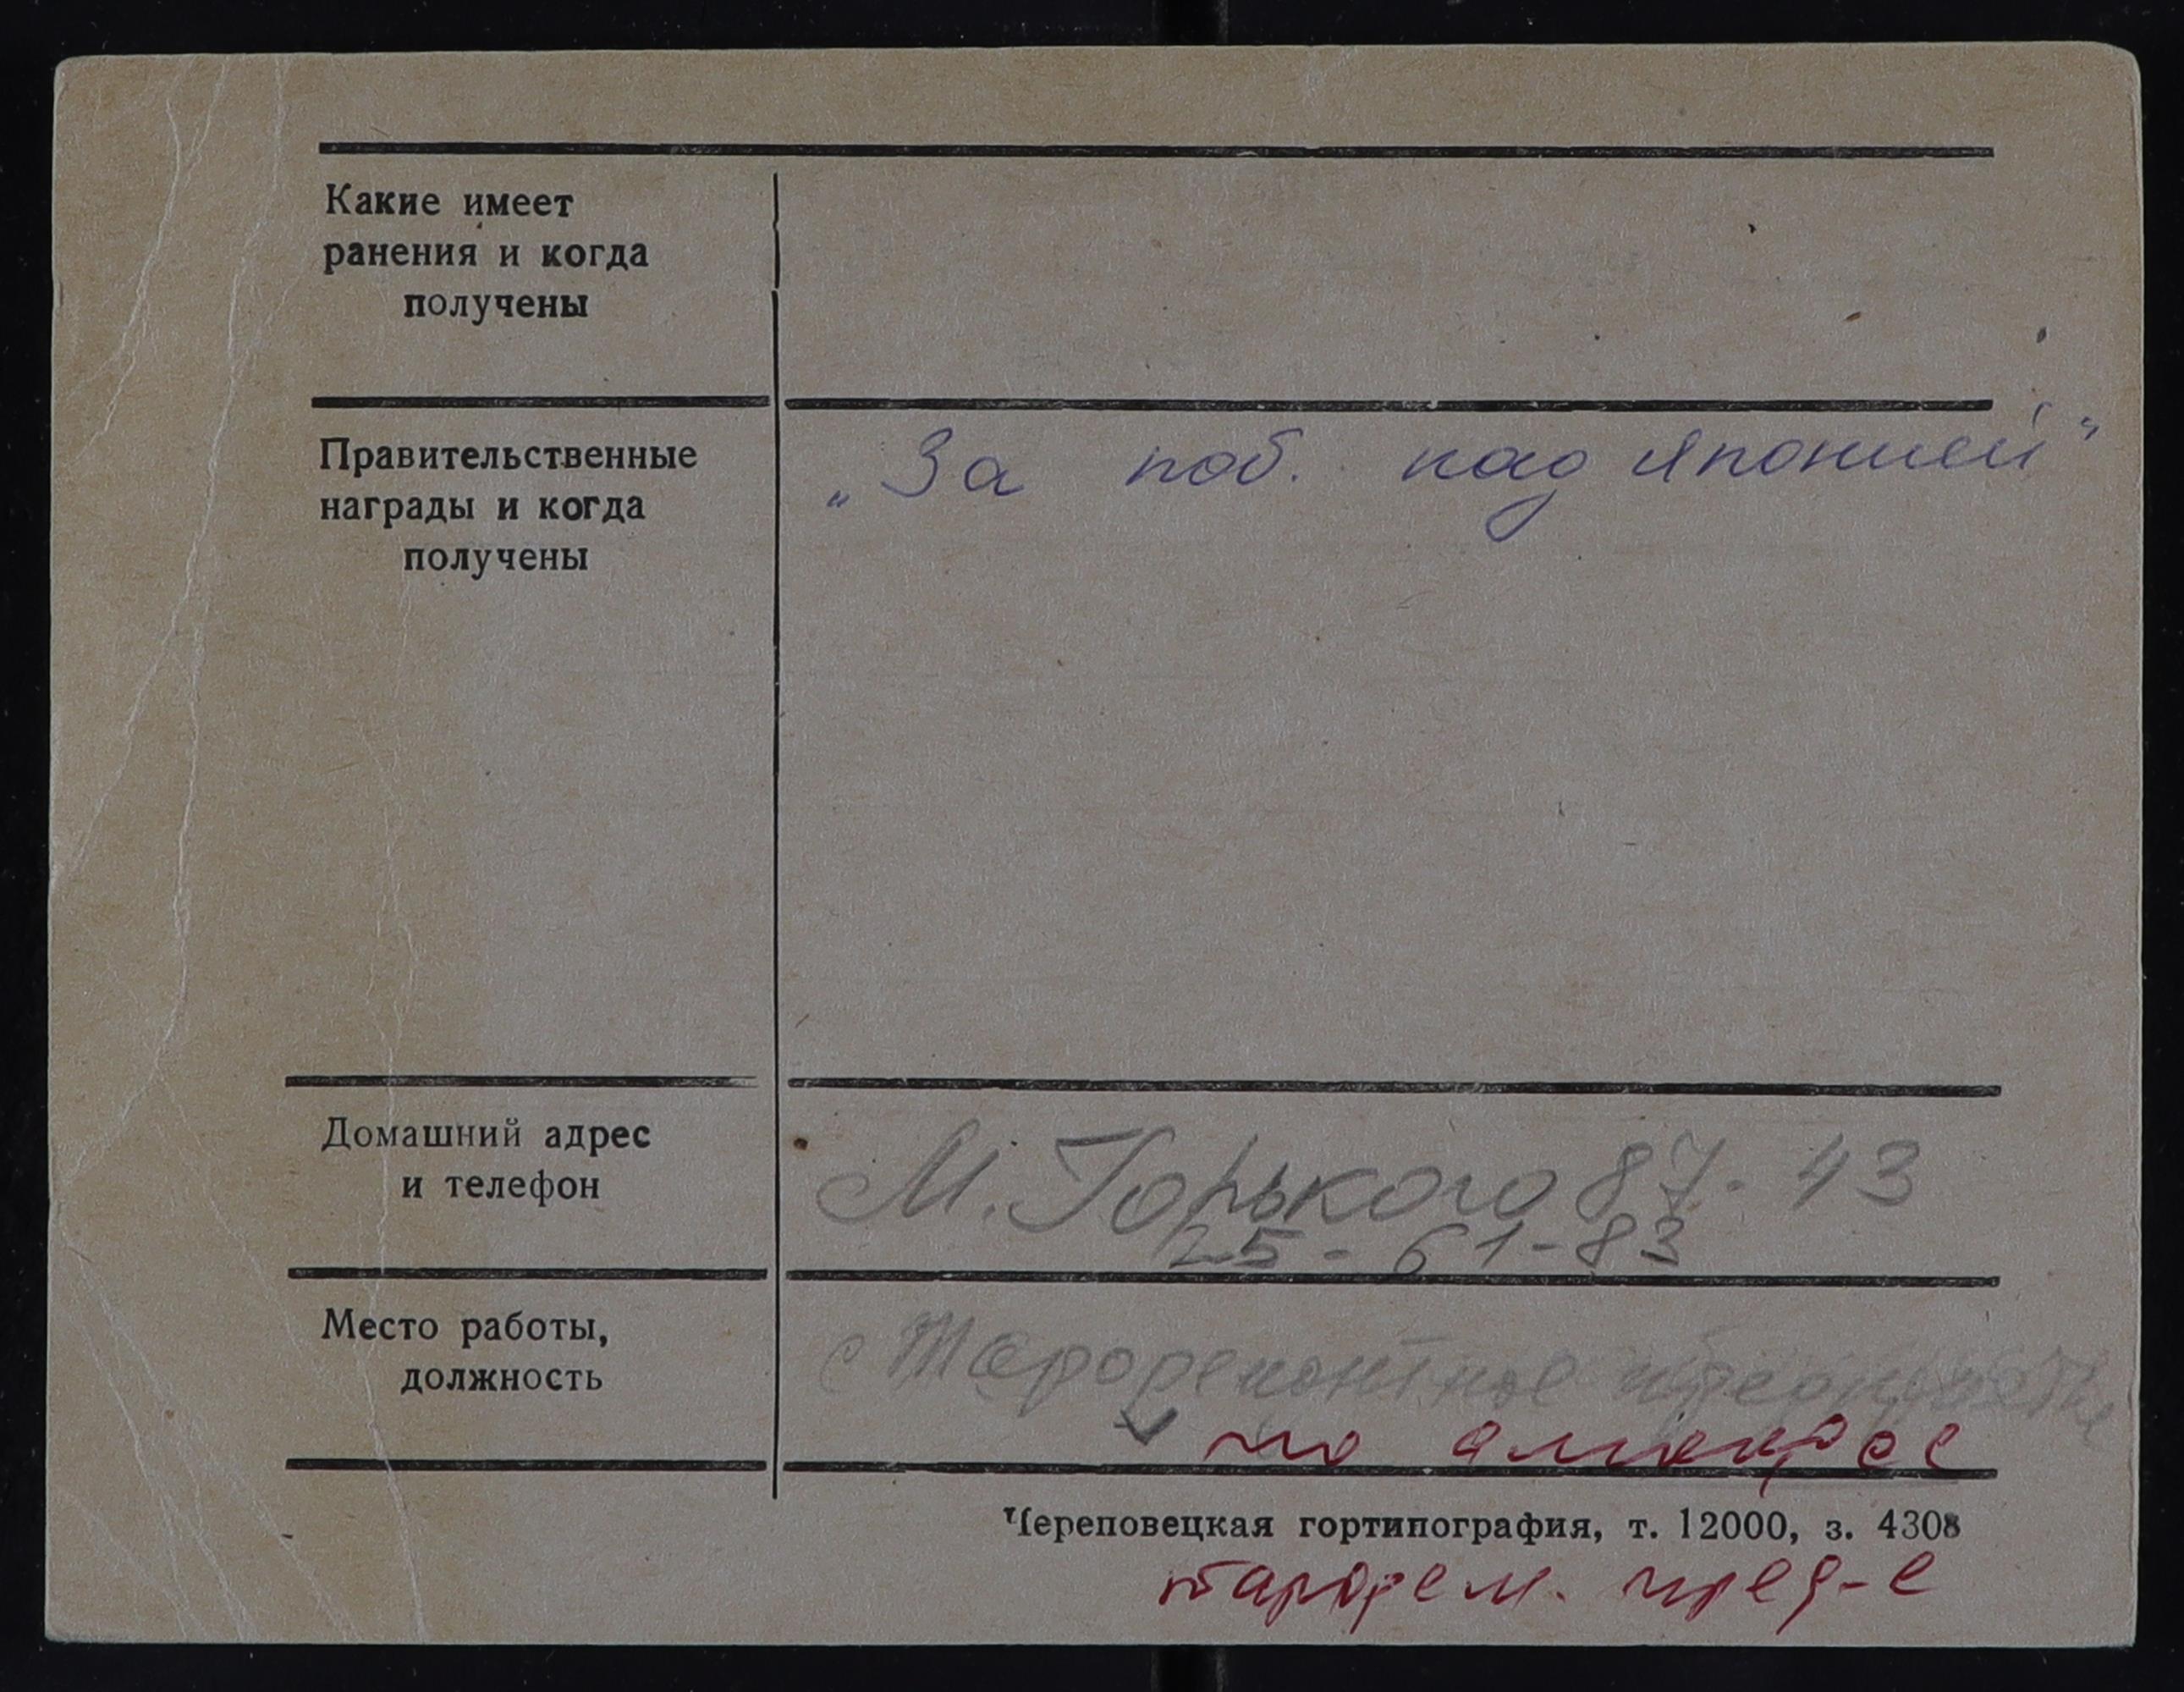 Какие имеет
ранения и когда
получены
Правительственные
награды и когда
получены
„За поб. над Японией“
Домашний адрес
и телефон
М. Горького 87-43
25-61-83
Место работы,
должность
Тароремонтное предприятие
по
Череповецкая гортипография, т. 12000, з. 4308
тарорем. пред-е